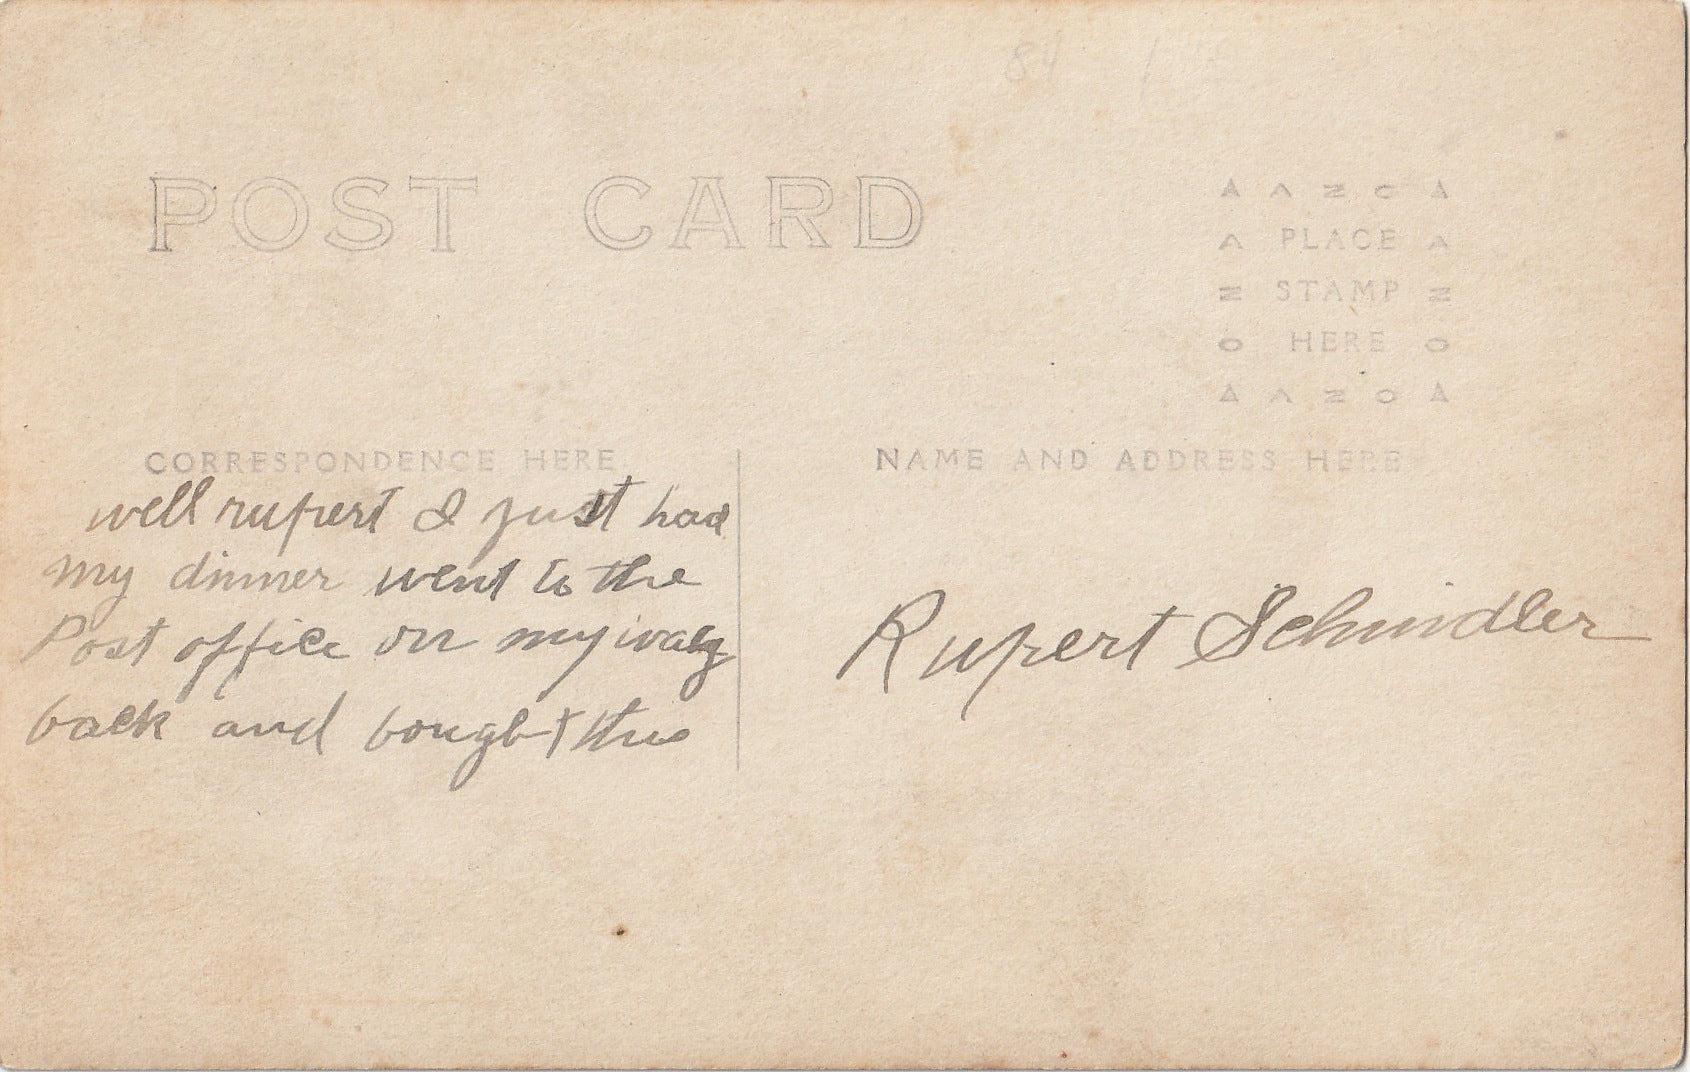 84
POST CARD
A Z O
PLACE
STAMP
HERE
A Z O
CORRESPONDENCE HERE
well rupert I just had
my dinner went to the
Post office on my way
back and bought this
NAME AND ADDRESS HERE
Rupert Schindler